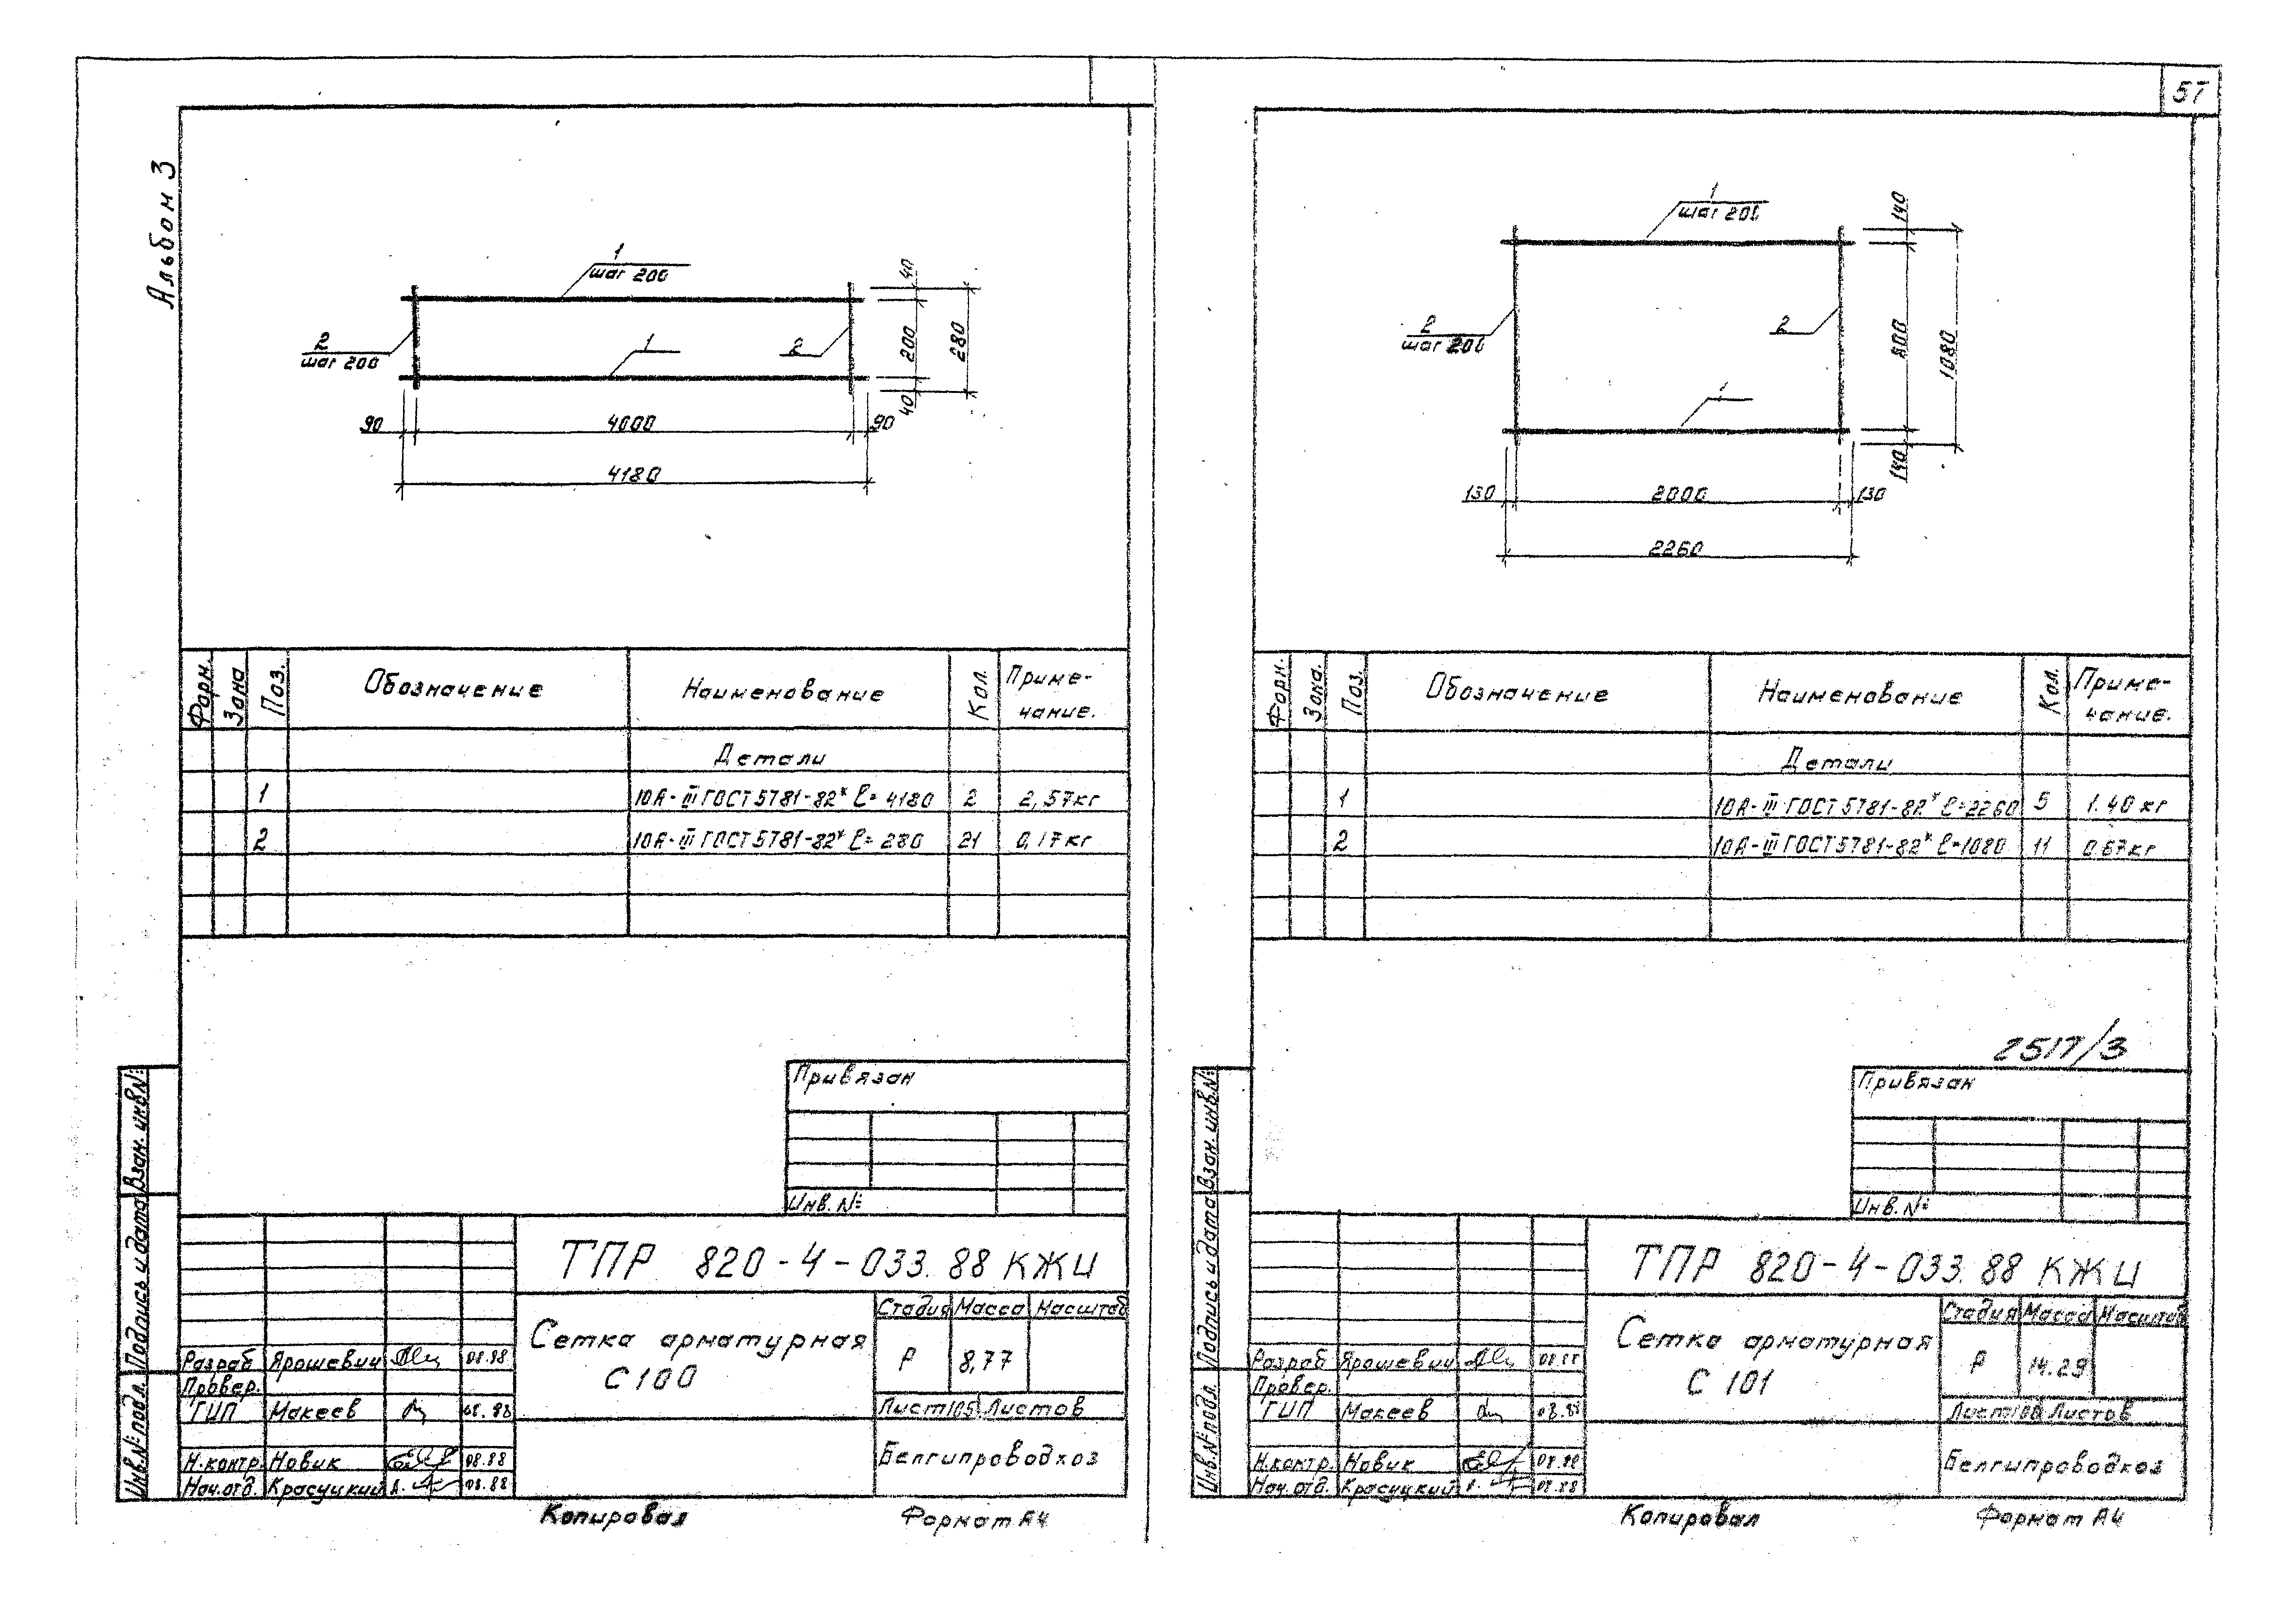 57
Альбом 3
1
шаг 200
2
шаг 200
1
2
40
200
40
280
90
4000
90
4180
Форм.
Зона
Поз.
Обозначение
Наименование
Кол.
Приме-
чание.
Детали
1 10А-III ГОСТ 5781-82* ℓ= 4180 2 2,57кг
2 10А-III ГОСТ 5781-82* ℓ= 280 21 0,17кг
Привязан
Инв. №
ТПР 820-4-033.88 КЖИ
Сетка арматурная
С 100
Стадия Масса Масштаб
Р 8,77
Лист 105 Листов
Белгипроводхоз
Разраб Ярошевич 08.88
Провер.
ГИП Макеев 08.88
Н.контр. Новик 08.88
Нач.отд. Красуцкий 08.88
Взам. инв.№
Подпись и дата
Инв.№ подл.
Копировал
Формат А4
1
шаг 200
2
шаг 200
2
1
140
800
140
1080
130
2000
130
2260
Форм.
Зона.
Поз.
Обозначение
Наименование
Кол.
Приме-
чание.
Детали
1 10А-III ГОСТ 5781-82* ℓ=2260 5 1.40 кг
2 10А-III ГОСТ 5781-82* ℓ=1080 11 0.67кг
2517/3
Привязан
Инв. №
ТПР 820-4-033.88 КЖИ
Сетка арматурная
С 101
Стадия Масса Масштаб
Р 14.29
Лист Листов
Белгипроводхоз
Разраб Ярошевич
Провер.
ГИП Макеев 08.88
Н.контр. Новик 08.88
Нач.отд. Красуцкий 08.88
Взам. инв.№
Подпись и дата
Инв.№ подл.
Копировал
Формат А4